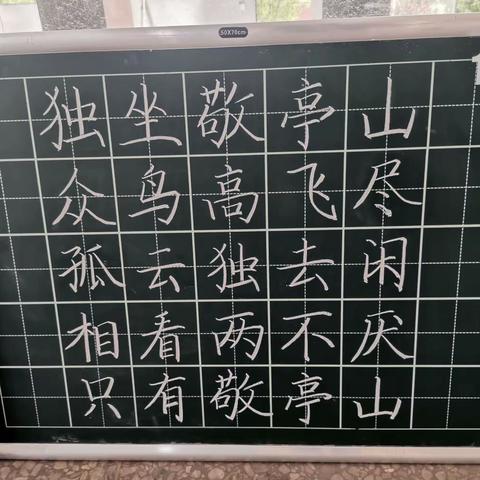 50X70cm
独坐敬亭山
众鸟高飞尽
孤云独去闲
相看两不厌
只有敬亭山